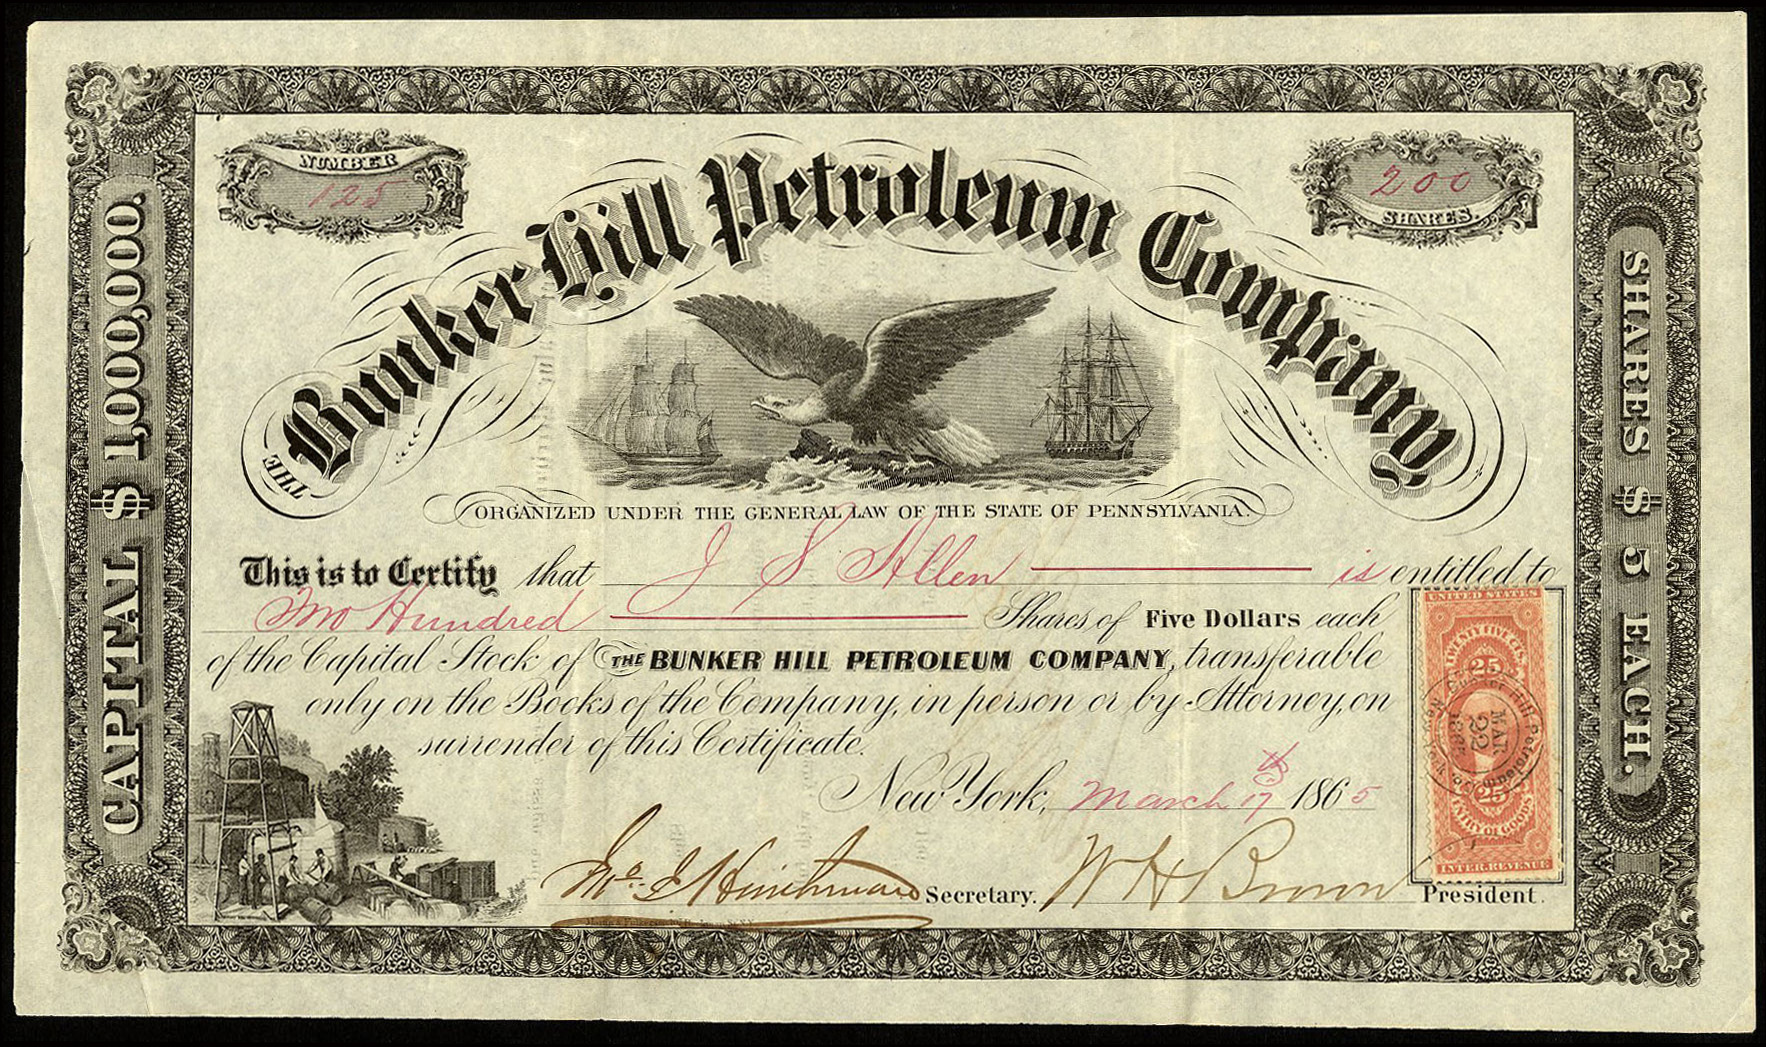 NUMBER
125
200
SHARES.
THE Bunker Hill Petroleum Company
ORGANIZED UNDER THE GENERAL LAW OF THE STATE OF PENNSYLVANIA.
This is to Certify that J S Allen is entitled to
Two Hundred Shares of Five Dollars each
of the Capital Stock of THE BUNKER HILL PETROLEUM COMPANY, transferable
only on the Books of the Company, in person or by Attorney, on
surrender of this Certificate.
New York, March 17th 1865
Hinchman Secretary. W H Brown President.
CAPITAL $ 1,000,000.
SHARES $ 5 EACH.
UNITED STATES
TWENTY FIVE CTS.
25
Bunker Hill Petroleum Co. New York
MAR
22
1865
25
ENTRY OF GOODS
INTER. REVENUE